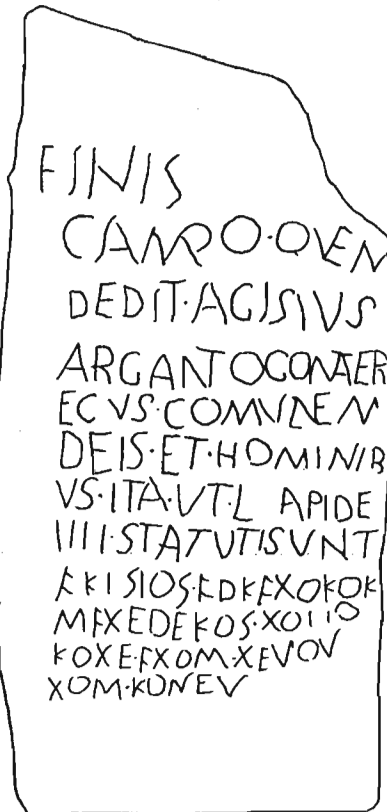 FINIS
CAMPO·QVEM
DEDIT·ACISIVS
ARGANTOCOMATER
ECVS·COMVNEM
DEIS·ET·HOMINIB
VS·ITA·VT·L APIDE
IIII·STATVTISVNT
FKISIOS·FDKFXOKOK
MFXEDEKOS·XOIIO
KOXE·FXOM·XEVOV
XOM·KONEV